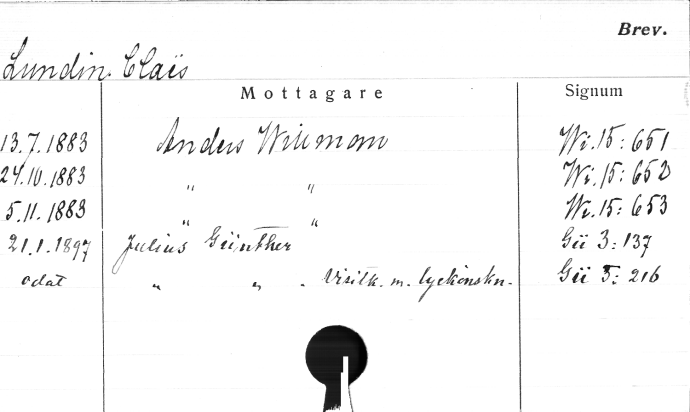 Brev.
Lundin. Claës
Mottagare Signum
13.7.1883 Anders Willman Wi.15:651
24.10.1883 " " Wi.15:652
5.11.1883 " " Wi.15:653
21.1.1897 Julius Günther Gü 3:137
odat " " . Visitk. m. lyckönskn. Gü 5:216